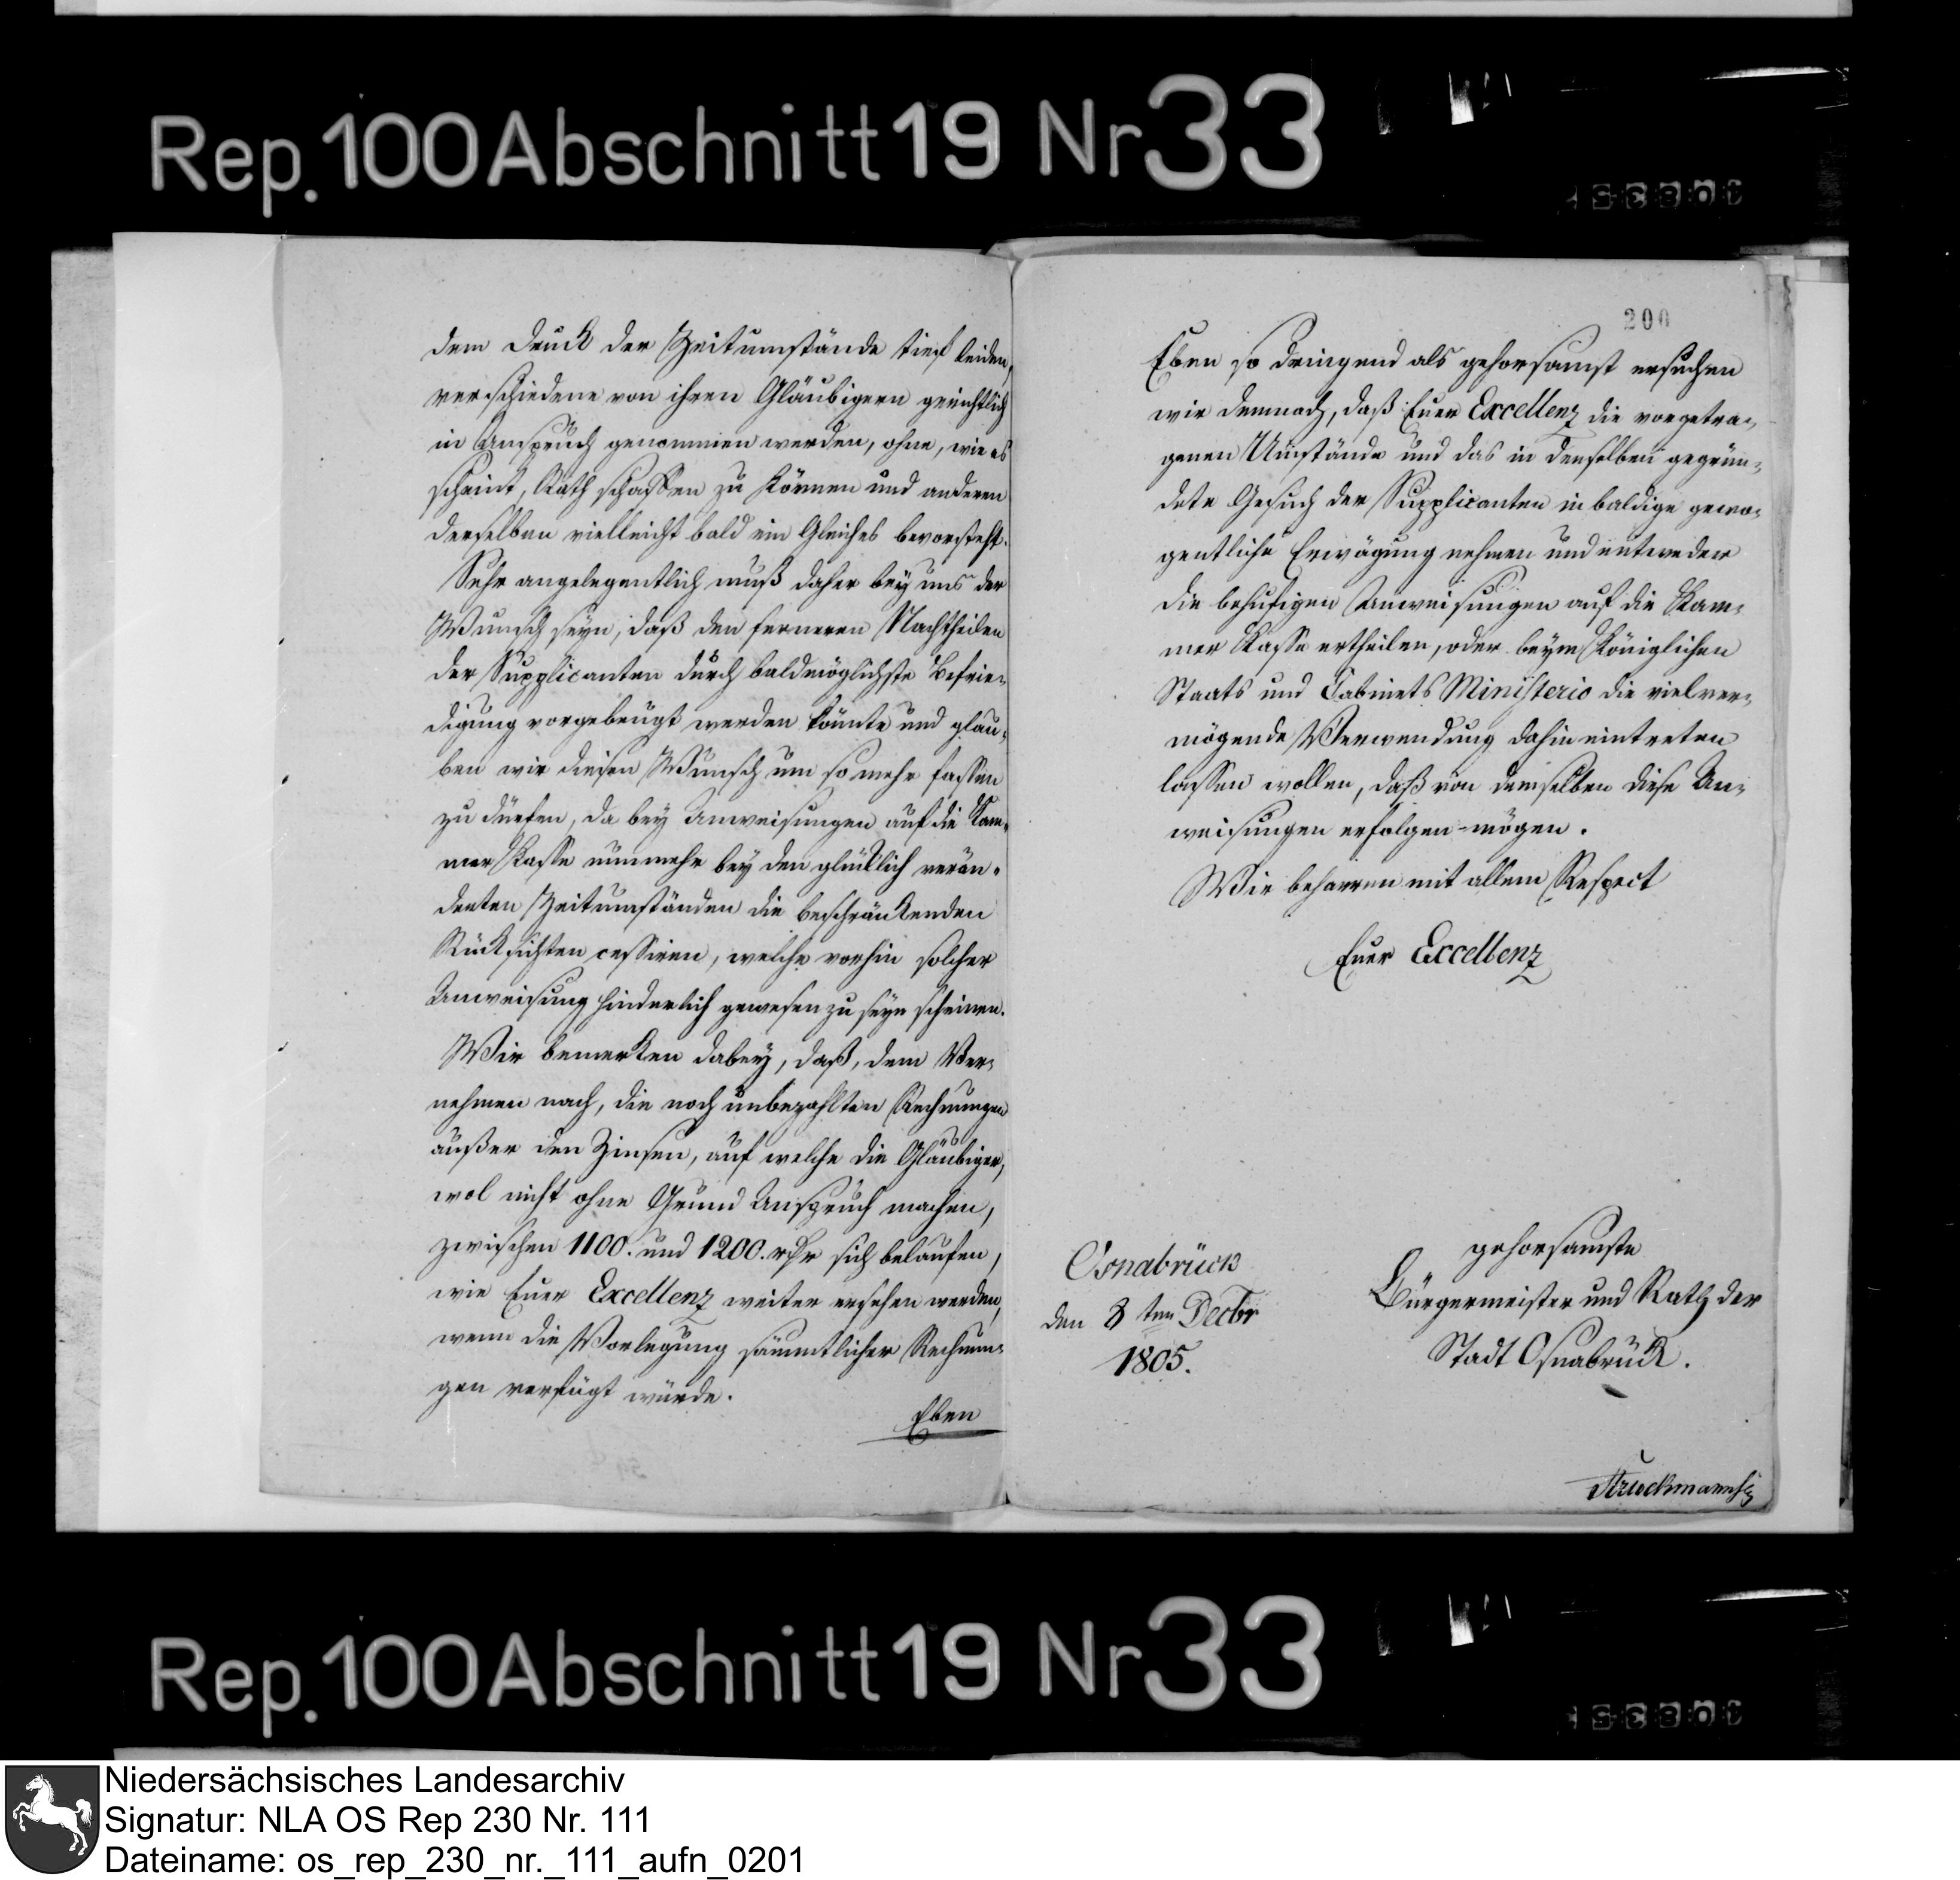 Rep. 100 Abschnitt 19 Nr 33
dem Druck der Zeitumstände tief leiden,
verschiedene von ihren Gläubigern gerichtlich
in Anspruch genommen werden, ohne, wie es
scheint, Rath schaffen zu können und anderen
derselben vielleicht bald ein Gleiches bevorsteht.
Sehr angelegentlich muß daher bey uns der
Wunsch seyn, daß den ferneren Nachtheilen
der Supplicanten durch baldmöglichste Befrie-
digung vorgebeugt werden könnte und glau-
ben wir diesen Wunsch um so mehr fassen
zu dürfen, da bey Anweisungen auf die Kam-
mer Kasse nunmehr bey den glücklich verän-
derten Zeitumständen die beschränkenden
Rücksichten cessiren, welche vorhin solcher
Anweisung hinderlich gewesen zu seyn scheinen.
Wir bemerken dabey, daß, dem Ver-
nehmen nach, die noch unbezahlten Rechnungen
außer den Zinsen, auf welche die Gläubiger,
wol nicht ohne Grund Anspruch machen,
zwischen 1100. und 1200. rthr sich belaufen,
wie Euer Excellenz weiter ersehen werden,
wenn die Vorlegung sämmtlicher Rechnun-
gen verfügt würde.
Eben
200
Eben so dringend als gehorsamst ersuchen
wir demnach, daß Euer Excellenz die vorgetra-
genen Umstände und das in denselben gegrün-
dete Gesuch der Supplicanten in baldige gewo-
gentliche Erwägung nehmen und entweder
die behufigen Anweisungen auf die Kam-
mer Kasse ertheilen, oder beym Königlichen
Staats und Cabinets Ministerio die vielver-
mögende Verwendung dahin eintreten
lassen wollen, daß von demselben diese An-
weisungen erfolgen mögen.
Wir beharren mit allem Respect
Euer Excellenz
gehorsamste
Bürgermeister und Rath der
Stadt Osnabrück.
Osnabrück
den 8 ten Decbr
1805.
Struckmann
Rep. 100 Abschnitt 19 Nr 33
Niedersächsisches Landesarchiv
Signatur: NLA OS Rep 230 Nr. 111
Dateiname: os_rep_230_nr._111_aufn_0201